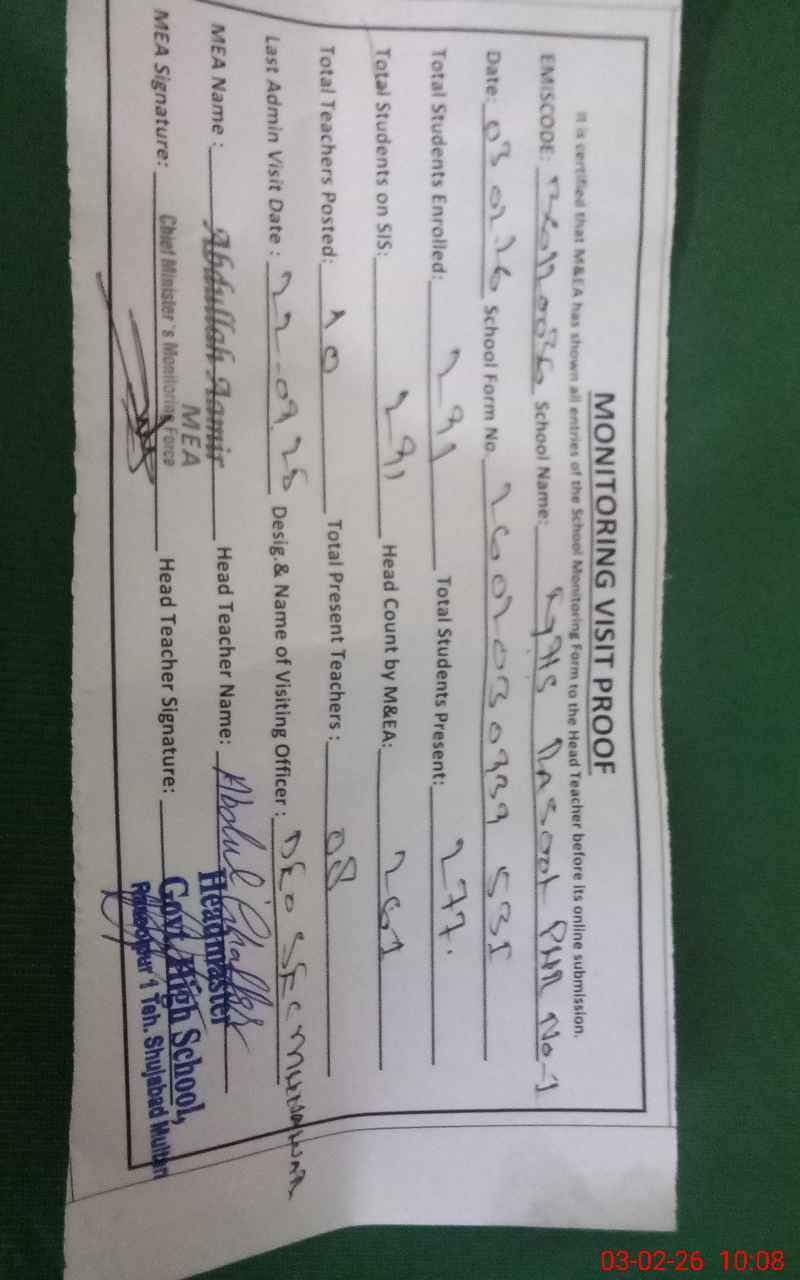 MONITORING VISIT PROOF
It is certified that M&EA has shown all entries of the School Monitoring Form to the Head Teacher before its online submission.
EMISCODE: School Name: PUR No-1
Date: 03 02 26 School Form No. 2602030939 531
Total Students Enrolled: 291 Total Students Present: 277.
Total Students on SIS: 291 Head Count by M&EA: 261
Total Teachers Posted: 10 Total Present Teachers : 08
Last Admin Visit Date : 22-09.25 Desig.& Name of Visiting Officer : DEO SEC
MEA Name : Abdullah Aamir Head Teacher Name: Abdul
MEA
MEA Signature: Chief Minister's Monitoring Force Head Teacher Signature:
Headmaster
Govt. High School,
Rasoolpur 1 Teh. Shujabad Multan
03-02-26 10:08